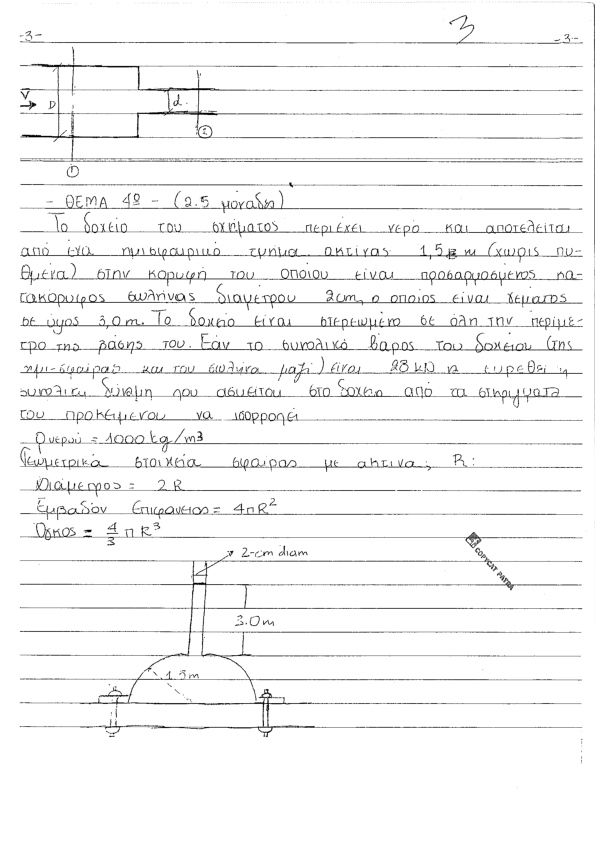 -3- 3 -3-
V D d.
① ②
- ΘΕΜΑ 4º - (2.5 μονάδες)
Το δοχείο του σχήματος περιέχει νερό και αποτελείται
από ένα ημισφαιρικό τμήμα ακτίνας 1,5 m (χωρίς πυ-
θμένα) στην κορυφή του οποίου είναι προσαρμοσμένος κα-
τακόρυφος σωλήνας διαμέτρου 2cm, ο οποίος είναι γεμάτος
σε ύψος 3,0 m. Το δοχείο είναι στερεωμένο σε όλη την περίμε-
τρο της βάσης του. Εάν το συνολικό βάρος του δοχείου (της
ημι-σφαίρας και του σωλήνα μαζί) είναι 28 kN να ευρεθεί η
συνολική δύναμη που ασκείται στο δοχείο από τα στηρίγματα
του προκειμένου να ισορροπεί
ρνερού = 1000 kg/m3
Γεωμετρικά στοιχεία σφαίρας με ακτίνα, R:
Διάμετρος = 2R
Εμβαδόν Επιφάνειας = 4πR²
Όγκος = 4/3 π R³
COPYCAT PATRA
2-cm diam
3.0m
1.5m